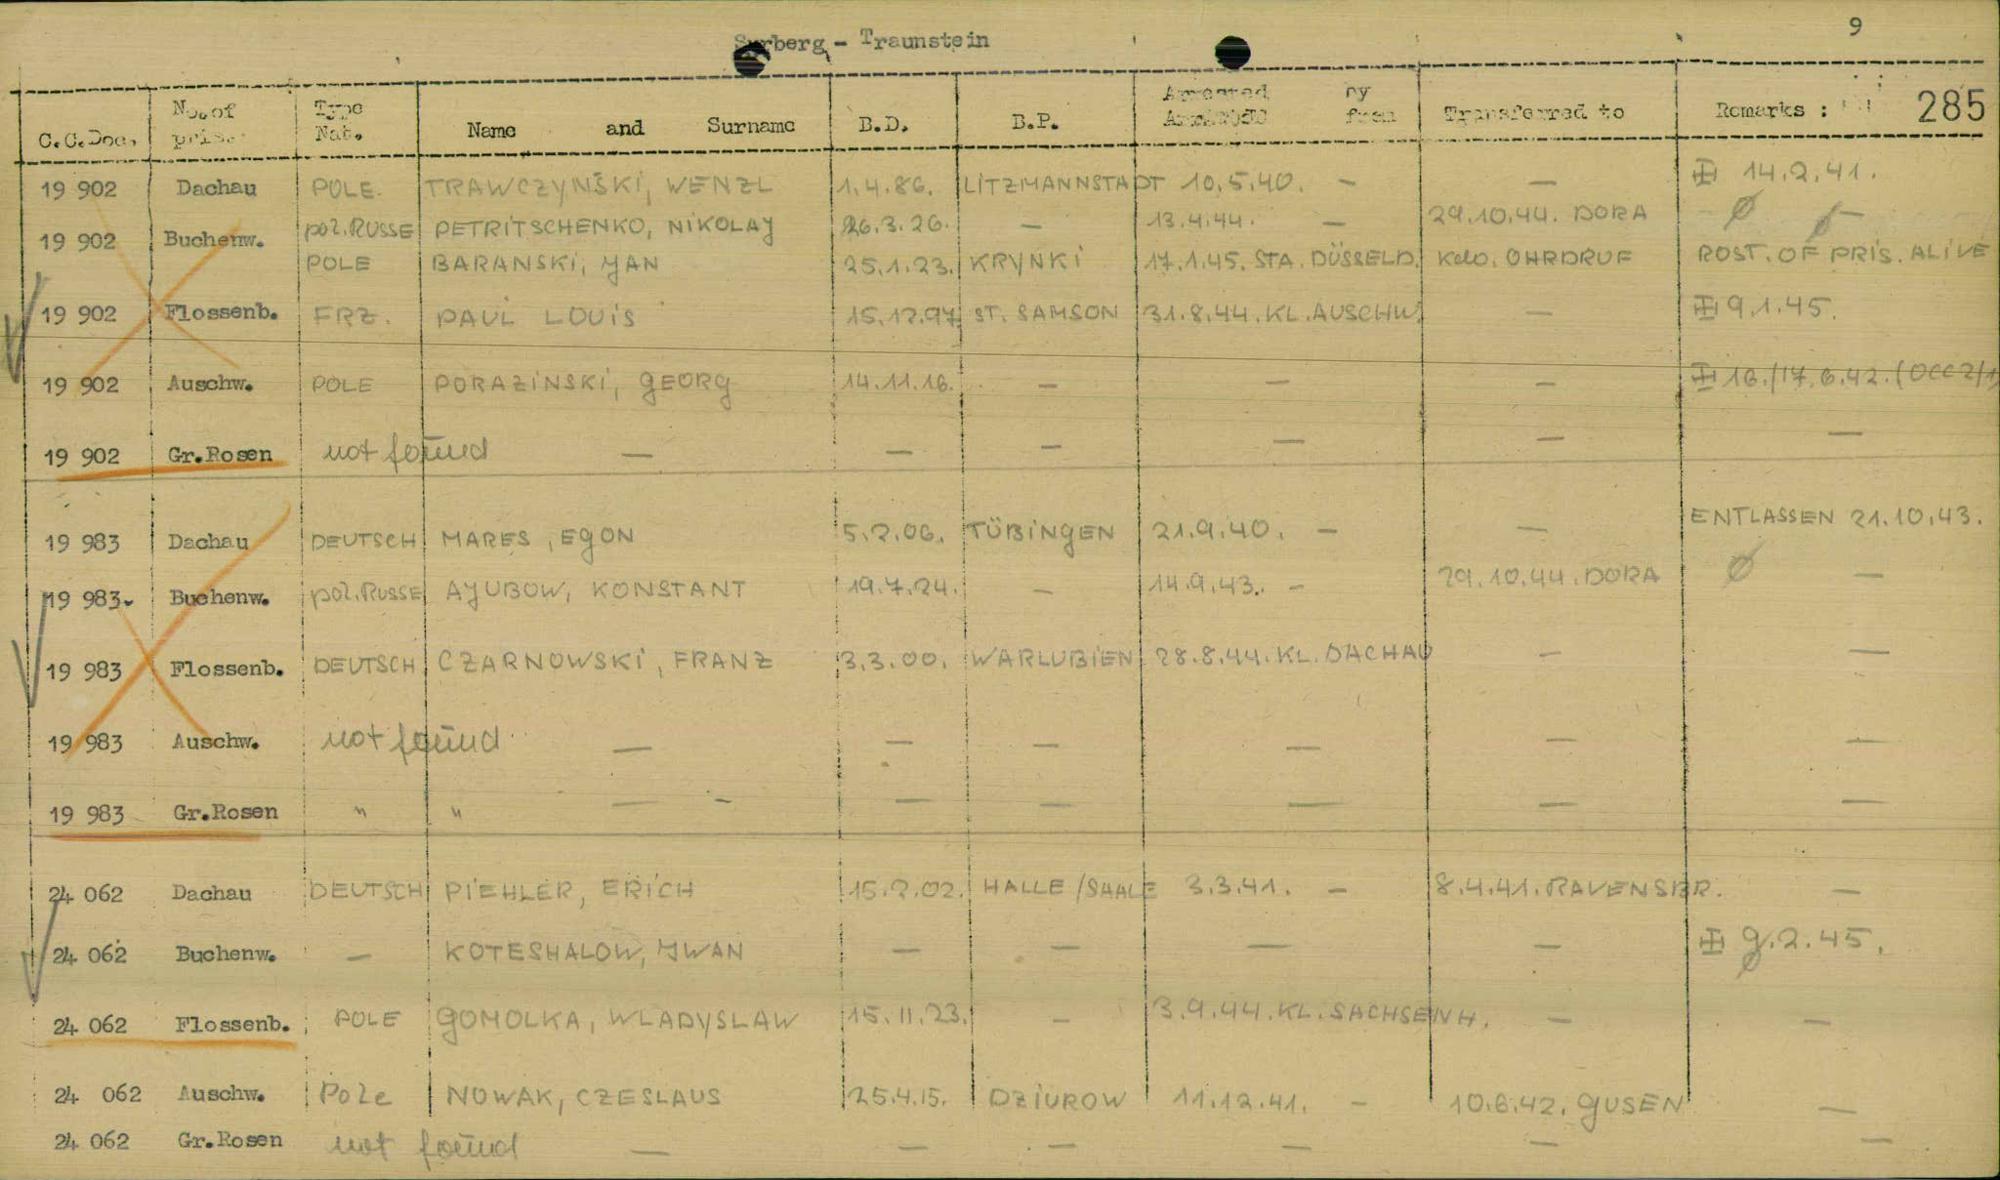 9
Surberg - Traunstein
285
C.C.Doc. No.of pris. Type Nat. Name and Surname B.D. B.P. Arrested by from Transferred to Remarks :
19 902 Dachau POLE. TRAWCZYNŠKI, WENZL 1.4.86. LITZMANNSTADT 10.5.40. — — 14.2.41.
19 902 Buchenw. pol.RUSSE PETRITSCHENKO, NIKOLAY 26.3.26. — 13.4.44. — 29.10.44. DORA —
POLE BARANSKI, JAN 25.1.23. KRYNKI 17.1.45. STA. DÜSSELD. Kdo. OHRDRUF ROST. OF PRIS. ALIVE
19 902 Flossenb. FRZ. PAUL LOUIS 15.12.97. ST. SAMSON 31.8.44. KL. AUSCHW. — 9.1.45.
19 902 Auschw. POLE PORAZINSKI, GEORG 14.11.16. — — — 16./17.6.42. (OCC2/1
19 902 Gr.Rosen not found — — — — — —
19 983 Dachau DEUTSCH MARES, EGON 5.2.06. TÜBINGEN 21.9.40. — — ENTLASSEN 21.10.43.
19 983 Buchenw. pol.RUSSE AJUBOW, KONSTANT 19.7.24. — 14.9.43. — 29.10.44. DORA —
19 983 Flossenb. DEUTSCH CZARNOWSKI, FRANZ 3.3.00. WARLUBIEN 28.8.44. KL. DACHAU — —
19 983 Auschw. not found — — — — — —
19 983 Gr.Rosen " " — - — — — — —
24 062 Dachau DEUTSCH PIEHLER, ERICH 15.2.02. HALLE /SAALE 3.3.41. — 8.4.41. RAVENSBR. —
24 062 Buchenw. — KOTESHALOW, JWAN — — — — 9.2.45.
24 062 Flossenb. POLE GOMOLKA, WLADYSLAW 15.11.23. — 3.9.44. KL. SACHSENH. — —
24 062 Auschw. Pole NOWAK, CZESLAUS 25.4.15. DZIUROW 11.12.41. — 10.6.42. GUSEN —
24 062 Gr.Rosen not found — — — — — —